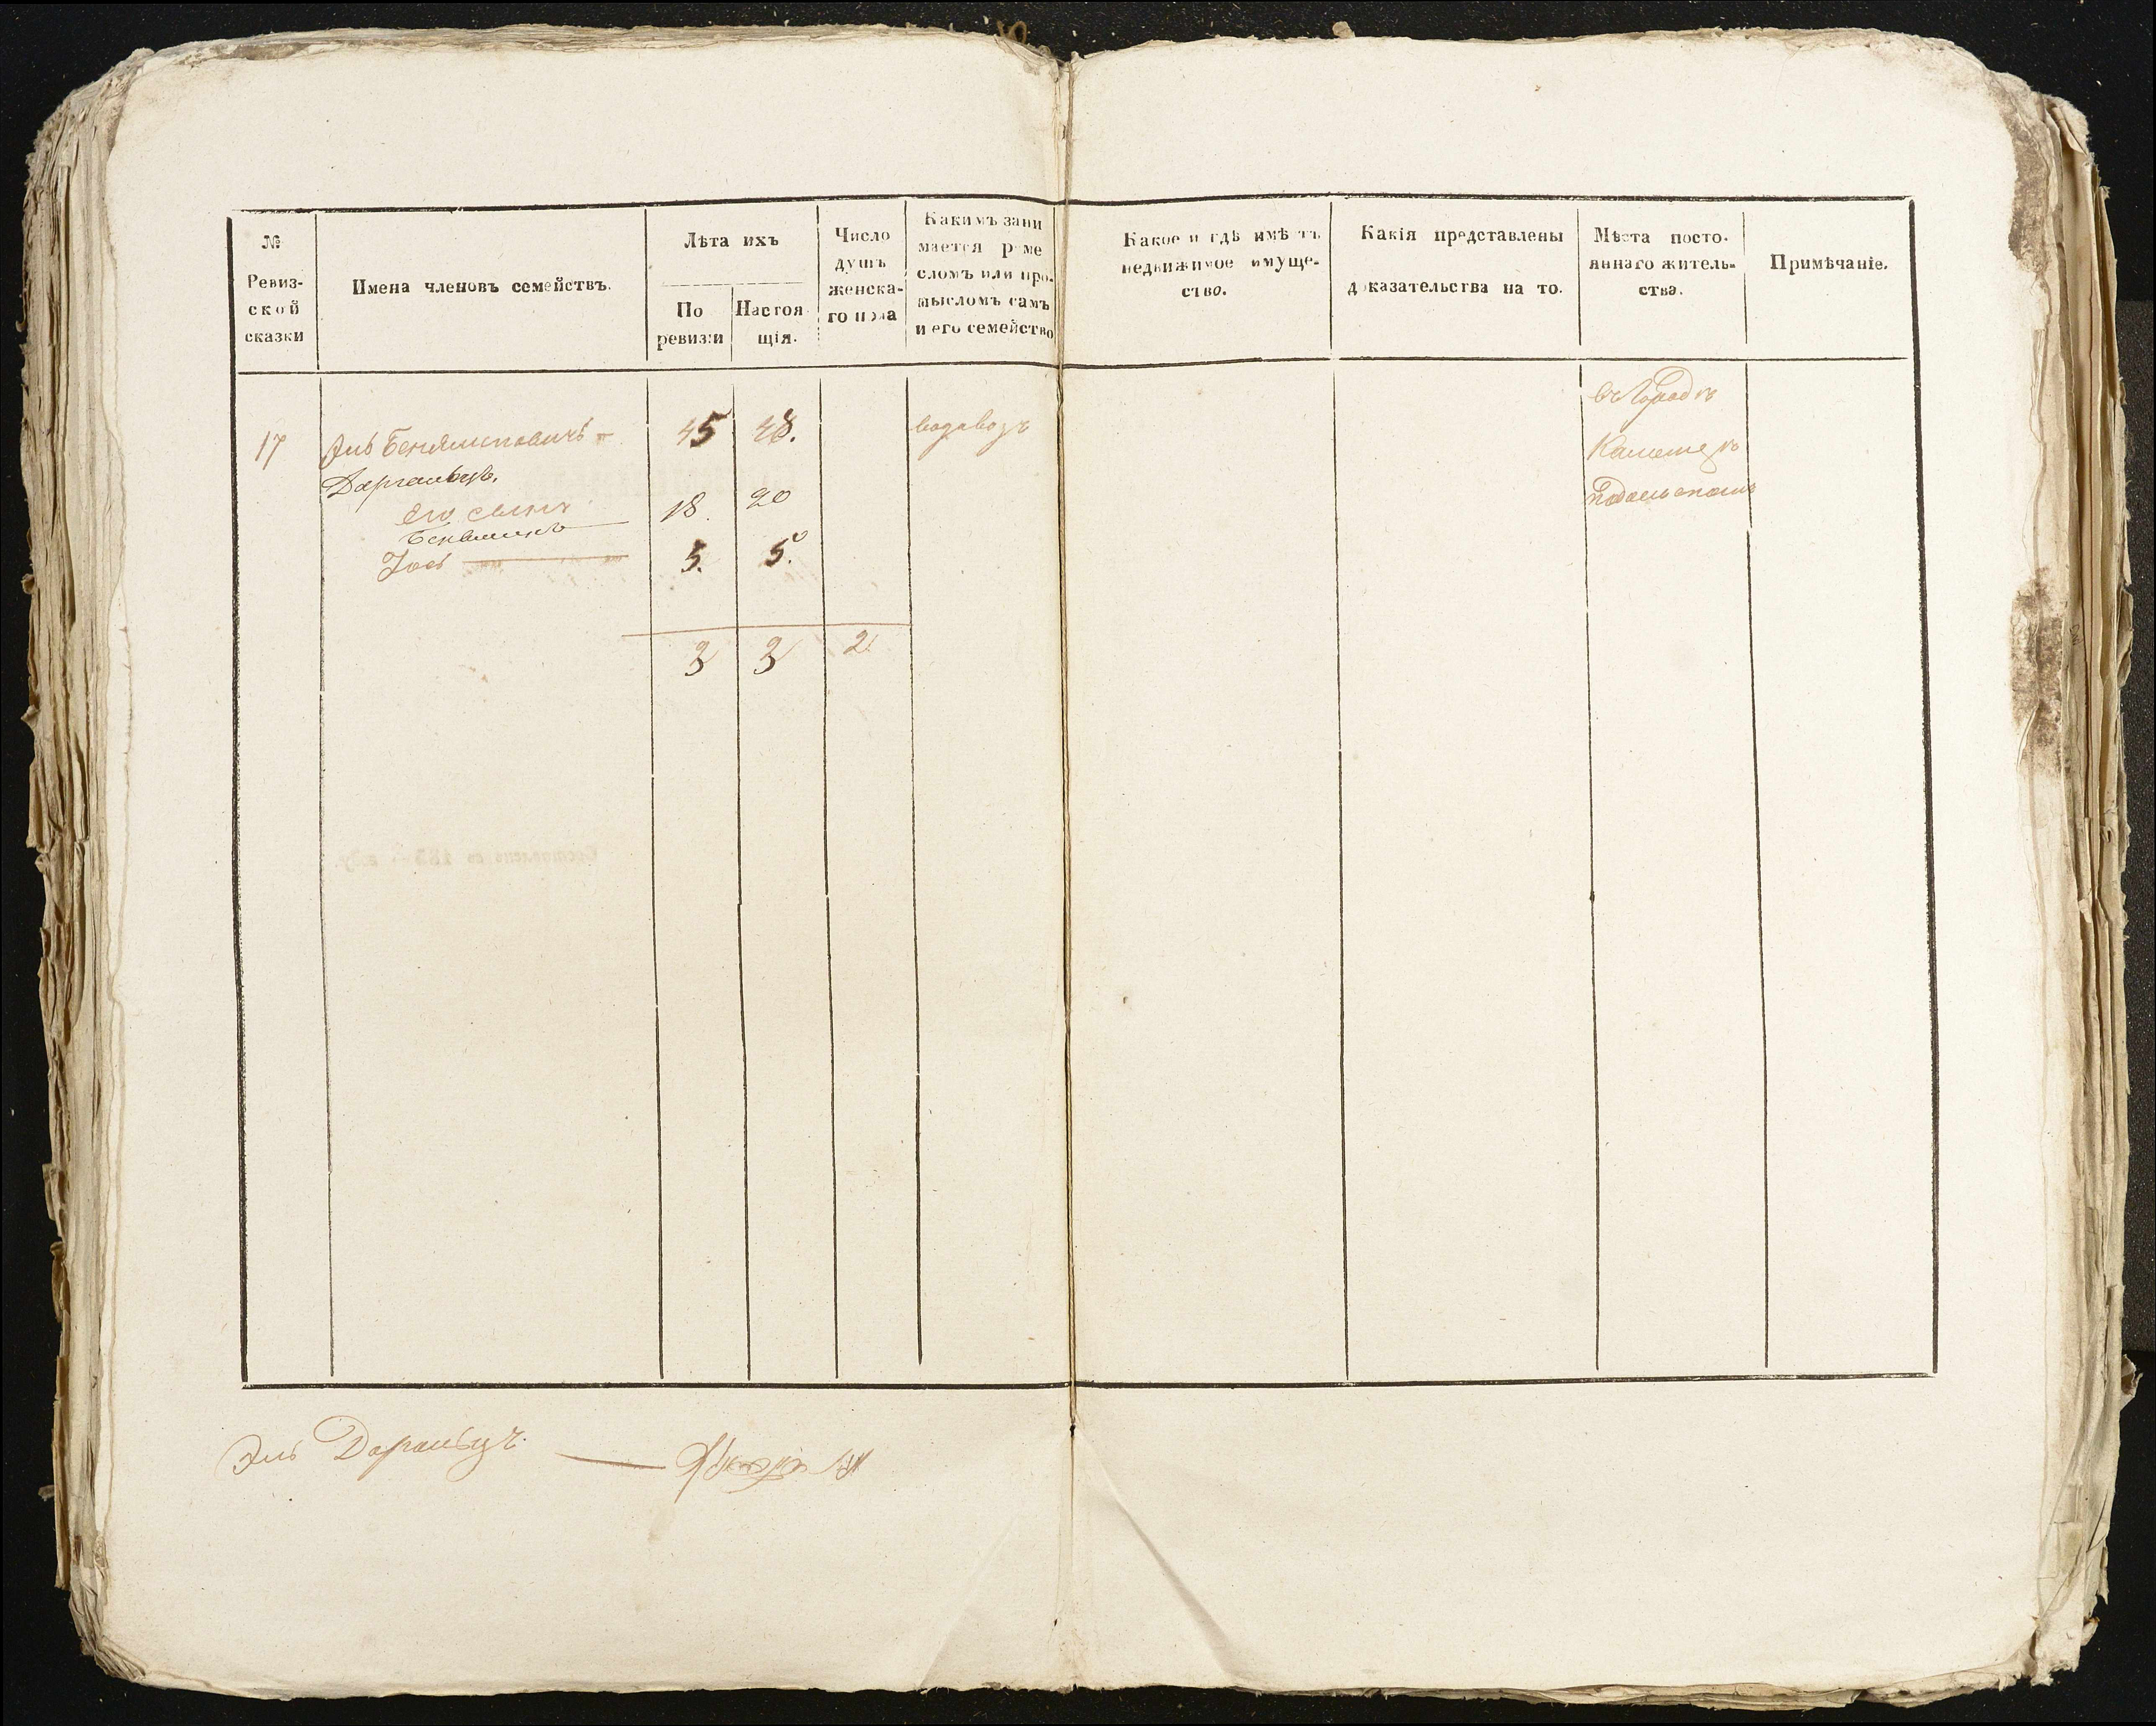 №
Ревиз-
ской
сказки
Имена членовъ семействъ.
Лѣта ихъ
По
ревизіи
Настоя
щія.
Число
душъ
женска-
го пола
Какимъ зани
мается реме
сломъ или про-
мысломъ самъ
и его семейство
Какое и гдѣ имѣетъ
недвижимое имуще-
ство.
Какія представлены
доказательства на то.
Мѣста посто-
яннаго житель-
ства.
Примѣчаніе.
17
Эль Беньяминовичъ
45
48.
водовозъ
въ Городѣ
Каменцѣ
Подольскомъ
его сынъ
Беньминъ
18.
20
Іось
3.
5.
3
3
2
Эль